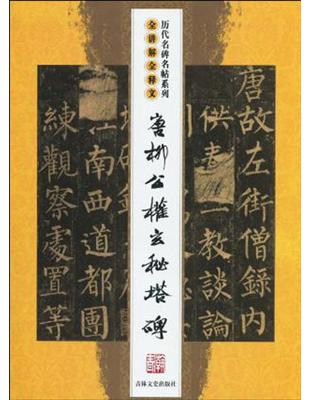 历代名碑名帖系列
全讲解全释文
唐柳公權玄秘塔碑
唐故左街僧錄内
供奉三教談論
江南西道都團
練觀察處置等
吉林文史出版社